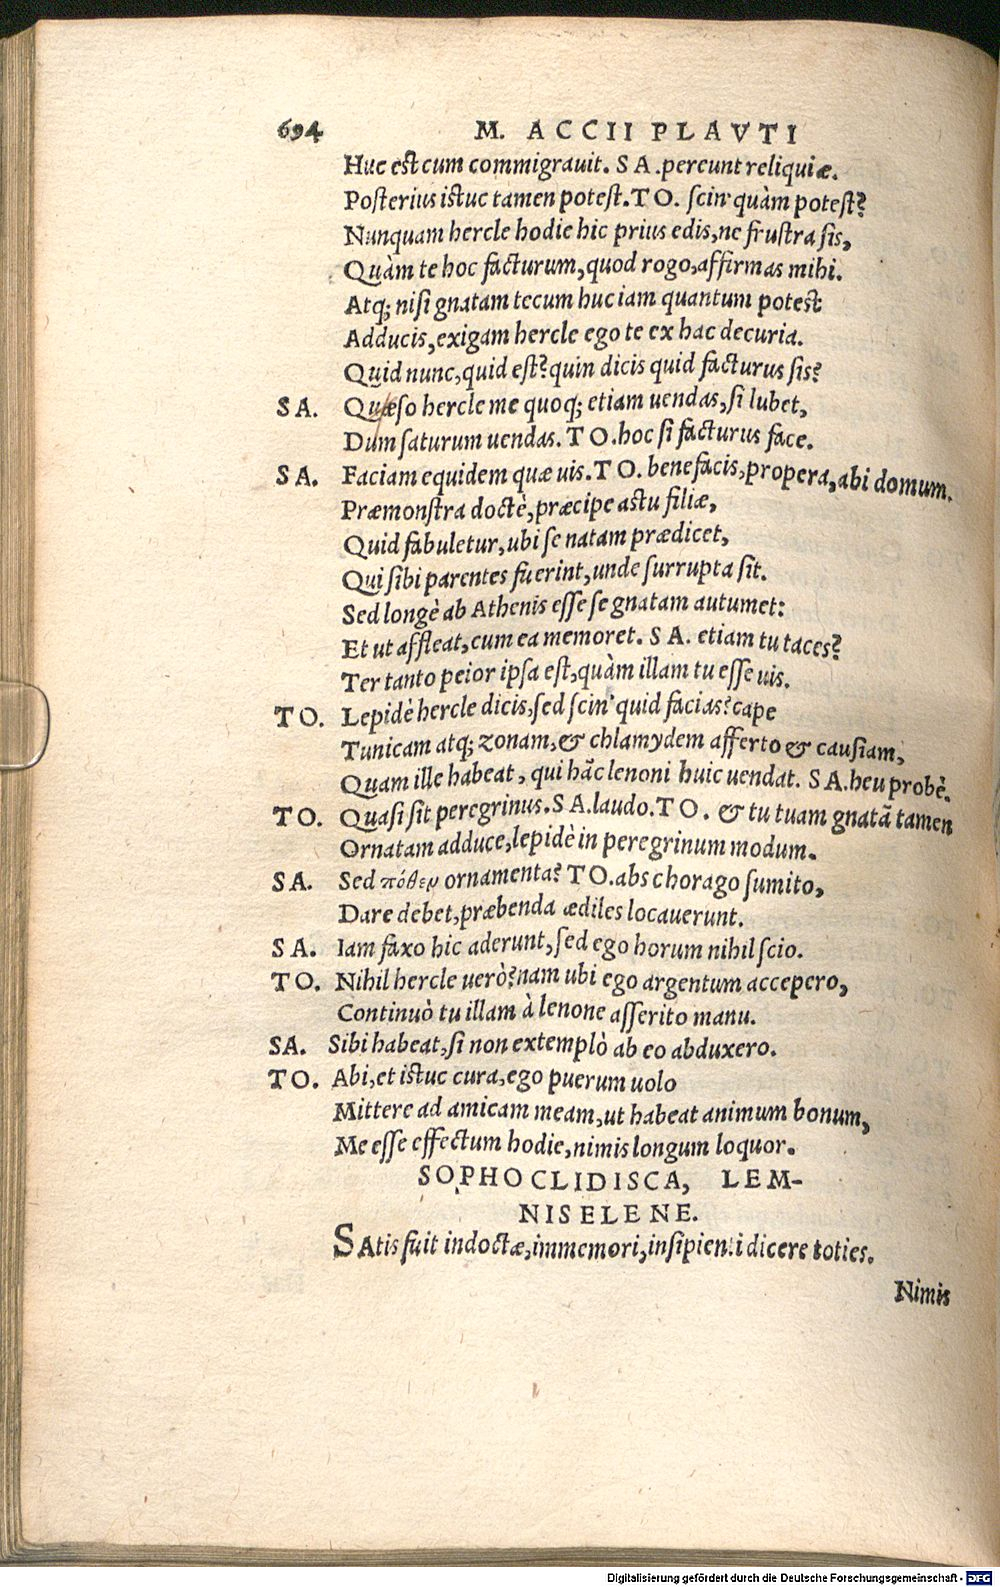 694 M. ACCII PLAVTI
Huc est cum commigrauit. SA. pereunt reliquiæ.
Posterius istuc tamen potest. TO. scin' quàm potest?
Nunquam hercle hodie hic prius edis, ne frustra sis,
Quàm te hoc facturum, quod rogo, affirmas mihi.
Atq; nisi gnatam tecum huc iam quantum potest
Adducis, exigam hercle ego te ex hac decuria.
Quid nunc, quid est? quin dicis quid facturus sis?
SA. Quæso hercle me quoq; etiam uendas, si lubet,
Dum saturum uendas. TO. hoc si facturus face.
SA. Faciam equidem quæ uis. TO. benefacis, propera, abi domum.
Præmonstra doctè, præcipe astu filiæ,
Quid fabuletur, ubi se natam prædicet,
Qui sibi parentes fuerint, unde surrupta sit.
Sed longè ab Athenis esse se gnatam autumet:
Et ut affleat, cum ea memoret. SA. etiam tu taces?
Ter tanto peior ipsa est, quàm illam tu esse uis.
TO. Lepidè hercle dicis, sed scin' quid facias? cape
Tunicam atq; zonam, & chlamydem afferto & causiam,
Quam ille habeat, qui hãc lenoni huic uendat. SA. heu probè.
TO. Quasi sit peregrinus. SA. laudo. TO. & tu tuam gnatã tamen
Ornatam adduce, lepidè in peregrinum modum.
SA. Sed πόθεν ornamenta? TO. abs chorago sumito,
Dare debet, præbenda ædiles locauerunt.
SA. Iam faxo hic aderunt, sed ego horum nihil scio.
TO. Nihil hercle uerò? nam ubi ego argentum accepero,
Continuò tu illam à lenone asserito manu.
SA. Sibi habeat, si non extemplò ab eo abduxero.
TO. Abi, et istuc cura, ego puerum uolo
Mittere ad amicam meam, ut habeat animum bonum,
Me esse effectum hodie, nimis longum loquor.
SOPHOCLIDISCA, LEM-
NISELENE.
SAtis fuit indoctæ, immemori, insipienti dicere toties.
Nimis
Digitalisierung gefördert durch die Deutsche Forschungsgemeinschaft - DFG